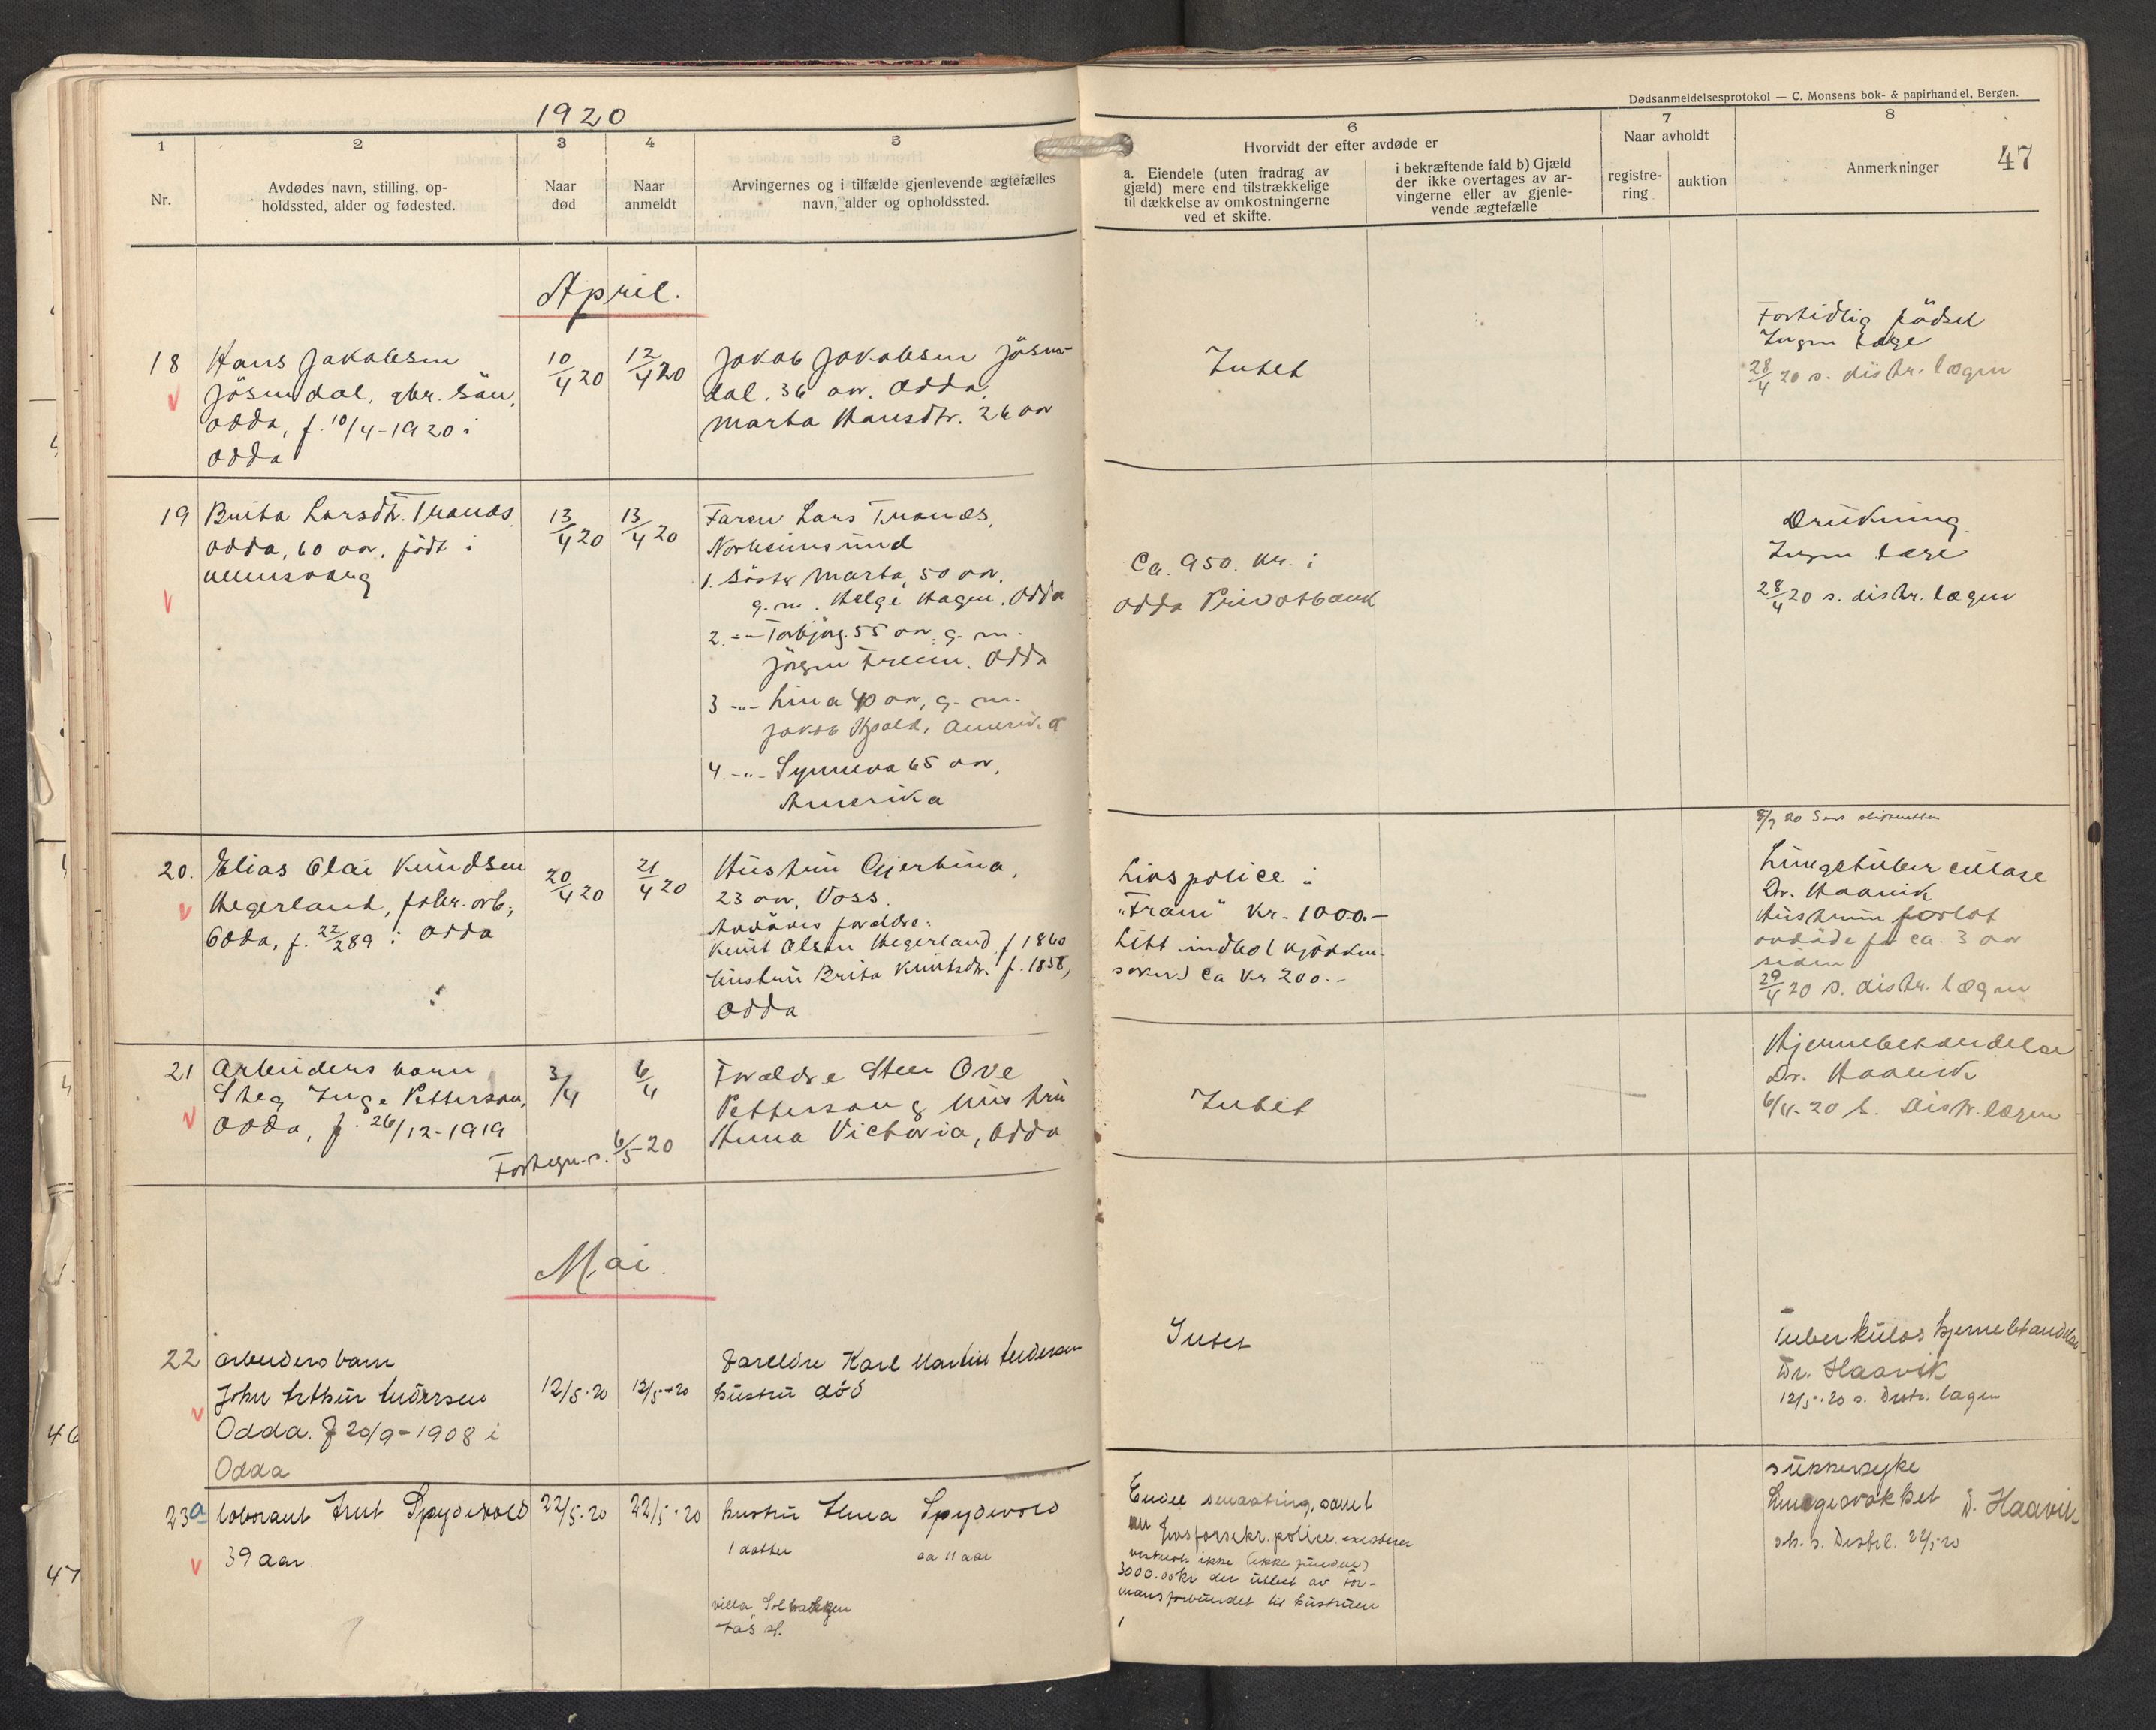 1920
Dødsanmeldelsesprotokol — C. Monsens bok- & papirhandel, Bergen.
47
1
Nr.
2
Avdødes navn, stilling, op-
holdssted, alder og fødested.
3
Naar
død
4
Naar
anmeldt
5
Arvingernes og i tilfælde gjenlevende ægtefælles
navn, alder og opholdssted.
6
Hvorvidt der efter avdøde er
a. Eiendele (uten fradrag av
gjæld) mere end tilstrækkelige
til dækkelse av omkostningerne
ved et skifte.
i bekræftende fald b) Gjæld
der ikke overtages av ar-
vingerne eller av gjenle-
vende ægtefælle
7
Naar avholdt
registre-
ring
auktion
8
Anmerkninger
April.
18
Hans Jakobsen
Jösendal, gbr. sön,
Odda, f. 10/4-1920 i
Odda
10/4 20
12/4 20
Jakob Jakobsen Jösen-
dal. 36 aar, Odda,
Marta Hansdtr. 26 aar
Intet
Fortidlig födsel
Ingen læge
28/4 20 s. distr. lægen
19
Brita Larsdtr. Tranæs
Odda, 60 aar, födt i
13/4 20
13/4 20
Faren Lars Tranæs,
Norheimsund
1. Söster Marta, 50 aar,
g. m. Helge Hagen, Odda
2. -"- Torbjörg 55 aar, g. m.
Jörgen Freim. Odda
3 -"- Lina 40 aar, g. m.
Jakob Amerika
4. -"- Synneva 65 aar,
Amerika
Ca. 950. kr. i
Odda Privatbank
Drukning.
Ingen læge
28/4 20 s. distr. lægen
8/7 20
20.
Elias Olai Knudsen
Hegerland, fabr. arb.,
Odda, f. 22/2 89 i Odda
20/4 20
21/4 20
Hustru Gjertina,
23 aar, Voss.
Avdödes forældre:
Knut Olsen Hegerland f 1860
hustru Brita Knutsdtr. f. 1858,
Odda
Livspolice i
"Fram" Kr. 1000.-
Litt indbo (kjökken-
saker) ca kr 200.-
Lungetuberculose
Dr. Haavik
Hustruen forlot
avdöde for ca. 3 aar
siden
29/4 20 s. distr. lægen
21
Arbeiders barn
Steg Inge Petterson,
Odda, f. 26/12-1919
3/4
6/4
Fortegn. s. 6/5-20
Forældre Sten Ove
Petterson & hustru
Anna Victoria, Odda
Intet
Hjernebetændelse
Dr. Haavik
6/4-20 s. Distr. lægen
Mai.
22
arbeiders barn
John Arthur Andersen
Odda. f 20/9-1908 i
Odda
12/5-20
12/5-20
Foreldre Karl Martin Andersen
hustru död
Intet
Tuberkulos hjernebetændelse
Dr. Haavik
12/5-20 s. Distr. lægen
23a
laborant Spydevold
39 aar
22/5-20
22/5-20
hustru Anna Spydevold
1 datter
ca 11 aar
villa
Endel smaating, samt
livsforsikr. police
ikke (ikke funden)
3000.00 kr der utbet av For-
mansforbundet til hustruen
sukkersyke
D. Haavik